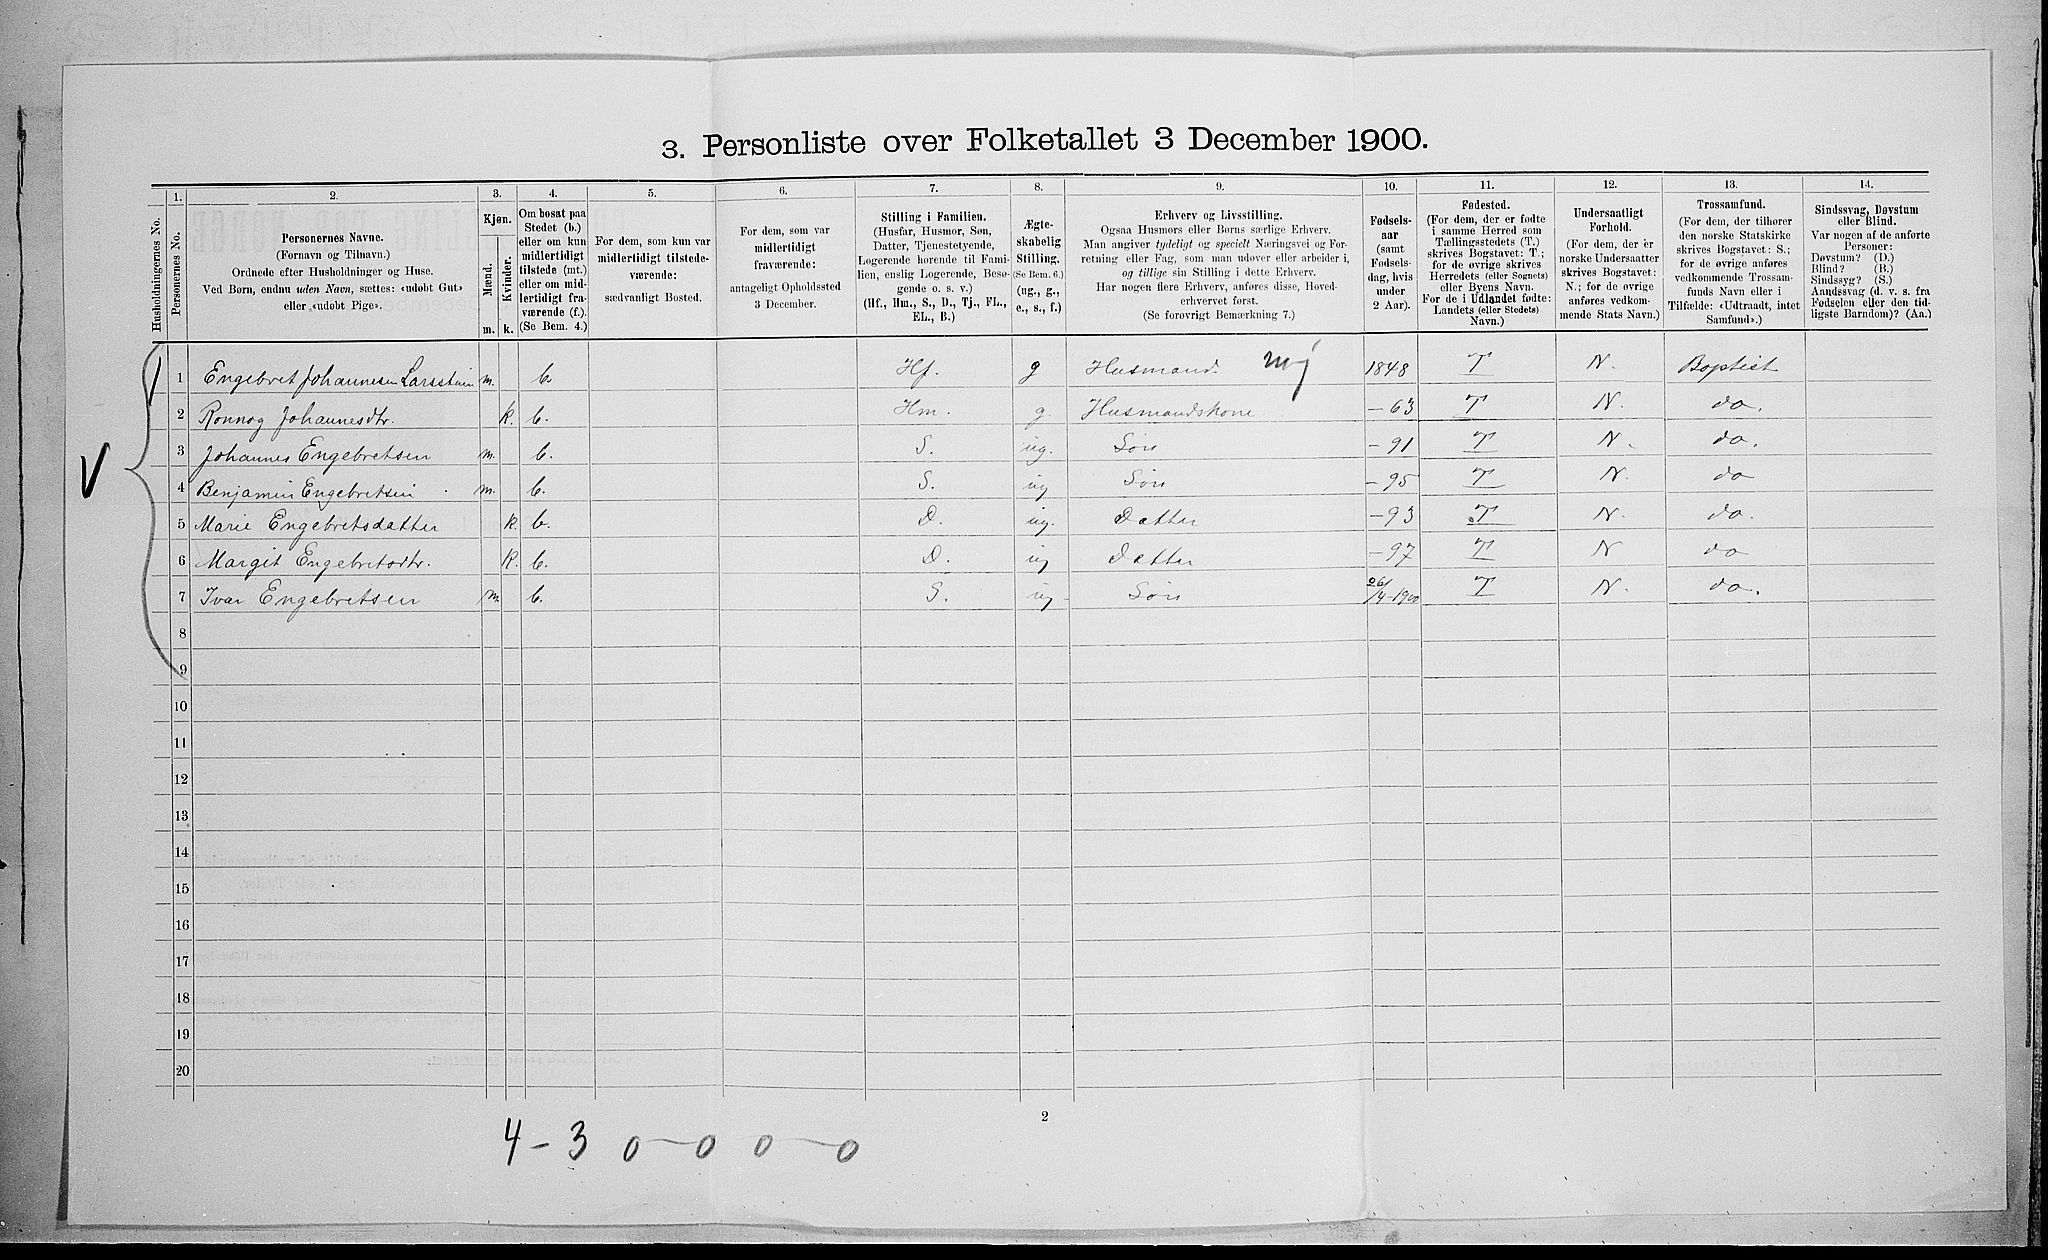 3. Personliste over Folketallet 3 December 1900.
1. 2. 3. 4. 5. 6. 7. 8. 9. 10. 11. 12. 13. 14.
Husholdningernes No.
Personernes No.
Personernes Navne.
(Fornavn og Tilnavn.)
Ordnede efter Husholdninger og Huse.
Ved Børn, endnu uden Navn, sættes: «udøbt Gut»
eller «udøbt Pige».
Kjøn.
Mænd.
Kvinder.
m. k.
Om bosat paa
Stedet (b.)
eller om kun
midlertidigt
tilstede (mt.)
eller om mid-
lertidigt fra-
værende (f.).
(Se Bem. 4.)
For dem, som kun var
midlertidigt tilstede-
værende:
sædvanligt Bosted.
For dem, som var
midlertidigt
fraværende:
antageligt Opholdssted
3 December.
Stilling i Familien.
(Husfar, Husmor, Søn,
Datter, Tjenestetyende,
Logerende hørende til Fami-
lien, enslig Logerende, Besø-
gende o. s. v.)
(Hf., Hm., S., D., Tj., FL.,
EL., B.)
Ægte-
skabelig
Stilling.
(Se Bem. 6.)
(ug., g.,
e., s., f.)
Erhverv og Livsstilling.
Ogsaa Husmors eller Børns særlige Erhverv.
Man angiver tydeligt og specielt Næringsvei og For-
retning eller Fag, som man udøver eller arbeider i,
og tillige sin Stilling i dette Erhverv.
Har nogen flere Erhverv, anføres disse, Hoved-
erhvervet først.
(Se forøvrigt Bemærkning 7.)
Fødsels-
aar
(samt
Fødsels-
dag, hvis
under
2 Aar).
Fødested.
(For dem, der er fødte
i samme Herred som
Tællingsstedets (T.)
skrives Bogstavet: T.;
for de øvrige skrives
Herredets (eller Sognets)
eller Byens Navn.
For de i Udlandet fødte:
Landets (eller Stedets)
Navn.)
Undersaatligt
Forhold.
(For dem, der er
norske Undersaatter
skrives Bogstavet:
N.; for de øvrige
anføres vedkom-
mende Stats Navn.)
Trossamfund.
(For dem, der tilhører
den norske Statskirke
skrives Bogstavet: S.;
for de øvrige anføres
vedkommende Trossam-
funds Navn eller i
Tilfælde: «Udtraadt, intet
Samfund».)
Sindssvag, Døvstum
eller Blind.
Var nogen af de anførte
Personer:
Døvstum? (D.)
Blind? (B.)
Sindssyg? (S.)
Aandssvag (d. v. s. fra
Fødselen eller den tid-
ligste Barndom)? (Aa.)
1 Engebret Johannesen m. b. Hf. g Husmand 1848 T N. Baptist
2 Ronnog Johannesdtr. k. b. Hm. g. Husmandskone -63 T N. do.
3 Johannes Engebretsen m. b. S. ug. Søn -91 T N. do.
4 Benjamin Engebretsen m. b. S. ug Søn -95 T N. do
5 Marie Engebretsdatter k. b. D. ug. Datter -93 T N. do.
6 Margit Engebretsdtr. k. b. D. ug Datter -97 T N do
7 Ivar Engebretsen m. b. S. ug Søn /4-1900 T N. do.
V
8
9
10
11
12
13
14
15
16
17
18
19
20
2
4 - 3 0 - 0 0 - 0